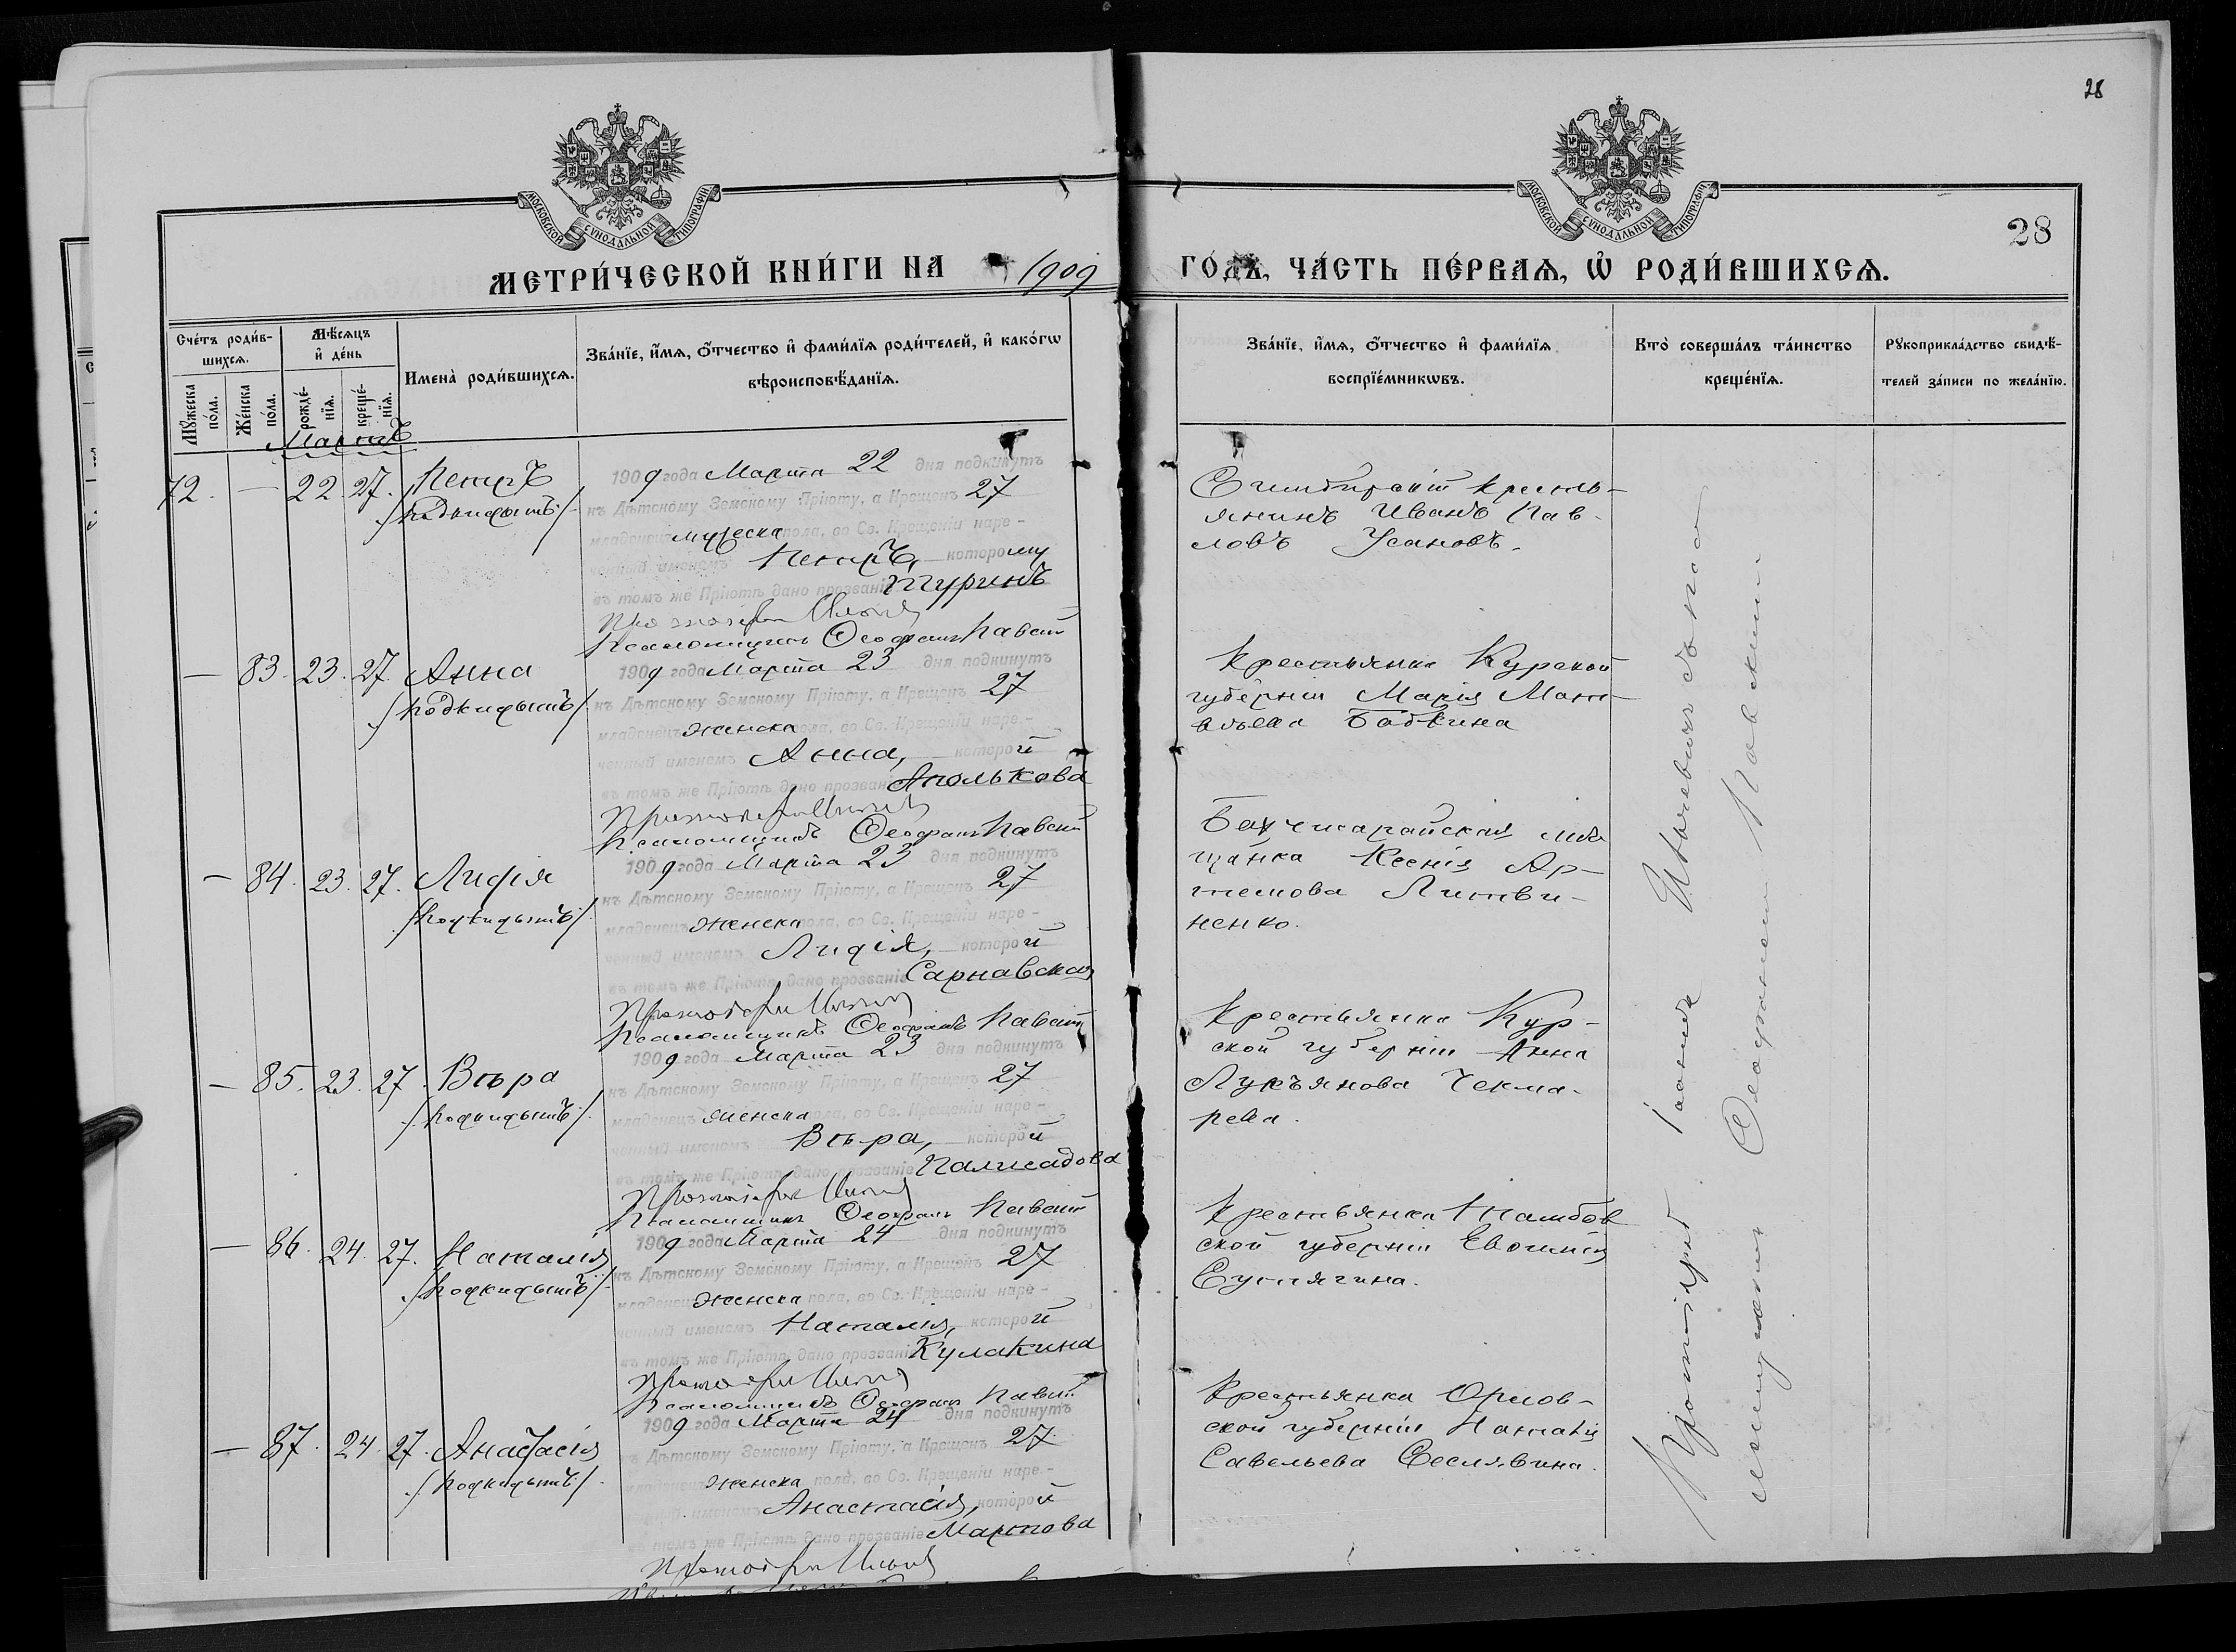 28
МОСКОВСКОЙ СУНОДАЛЬНОЙ ТИПОГРАФІИ
МОСКОВСКОЙ СУНОДАЛЬНОЙ ТИПОГРАФІИ
28
МЕТРИ́ЧЕСКОЙ КНИ́ГИ НА 1909
ГО́ДЪ, ЧА́СТЬ ПЕ́РВАѦ, Ѡ҆ РОДИ́ВШИХСѦ.
Сче́тъ роди́в-
шихсѧ.
Мѣ́сѧцъ
и҆ де́нь
Мꙋ́жеска
по́ла.
Же́нска
по́ла.
рожде́-
нїѧ.
креще́-
нїѧ.
Имена̀ роди́вшихсѧ.
Зва́нїе, и҆́мѧ, ѻ҆́тчество и҆ фами́лїѧ роди́телей, и҆ како́гѡ
вѣроисповѣ́данїѧ.
Зва́нїе, и҆́мѧ, ѻ҆́тчество и҆ фами́лїѧ
воспрїе́мникѡвъ.
Кто̀ соверша́лъ та́инство
креще́нїѧ.
Рꙋкоприкла́дство свидѣ́-
телей за́писи по жела́нїю.
Мартъ
72. — 22 27. Петръ
/подкидышъ/
1909 года Марта 22 дня подкинутъ
къ Дѣтскому Земскому Пріюту, а Крещенъ 27
младенецъ мужеска пола, во Св. Крещеніи наре-
ченный именемъ Петръ, которому
въ томъ же Пріютѣ дано прозваніе Туринъ
Протоіерей
Псаломщикъ Ѳеофанъ Павскій
Симбирскій кресть-
янинъ Иванъ Пав-
ловъ Усановъ.
— 83. 23. 27. Анна
/подкидышъ/
1909 года Марта 23 дня подкинутъ
къ Дѣтскому Земскому Пріюту, а Крещенъ 27
младенецъ женска пола, во Св. Крещеніи наре-
ченный именемъ Анна, которой
въ томъ же Пріютѣ дано прозваніе Апольскова
Протоіерей
Псаломщикъ Ѳеофанъ Павскій
Крестьянка Курской
губерніи Марія Мат-
вѣева Бабкина
— 84. 23. 27. Лидія
/подкидышъ/
1909 года Марта 23 дня подкинутъ
къ Дѣтскому Земскому Пріюту, а Крещенъ 27
младенецъ женска пола, во Св. Крещеніи наре-
ченный именемъ Лидія, которой
въ томъ же Пріютѣ дано прозваніе Сарнавская
Протоіерей
Псаломщикъ Ѳеофанъ Павскій
Бахчисарайская мѣ-
щанка Ксенія Ар-
темова Литви-
ненко.
— 85. 23. 27. Вѣра
/подкидышъ/
1909 года Марта 23 дня подкинутъ
къ Дѣтскому Земскому Пріюту, а Крещенъ 27
младенецъ женска пола, во Св. Крещеніи наре-
ченный именемъ Вѣра, которой
въ томъ же Пріютѣ дано прозваніе Палисадова
Протоіерей
Псаломщикъ Ѳеофанъ Павскій
Крестьянка Кур-
ской губерніи Анна
Лукъянова Чекма-
рева.
— 86. 24. 27. Наталія
/подкидышъ/
1909 года Марта 24 дня подкинутъ
къ Дѣтскому Земскому Пріюту, а Крещенъ 27
младенецъ женска пола, во Св. Крещеніи наре-
ченный именемъ Наталія, которой
въ томъ же Пріютѣ дано прозваніе Кулакина
Протоіерей
Псаломщикъ Ѳеофанъ Павскій
Крестьянка Тамбов
ской губерніи Евѳимія
Сутягина.
— 87. 24. 27. Анастасія
/подкидышъ/
1909 года Марта 24 дня подкинутъ
къ Дѣтскому Земскому Пріюту, а Крещенъ 27
младенецъ женска пола, во Св. Крещеніи наре-
ченный именемъ Анастасія, которой
въ томъ же Пріютѣ дано прозваніе Мартова
Протоіерей
Крестьянка Орлов-
ской губерніи Наталія
Савельева Сеслявина.
Протоіерей Іоаннъ съ пса-
ломщикомъ Ѳеофаномъ Павскимъ